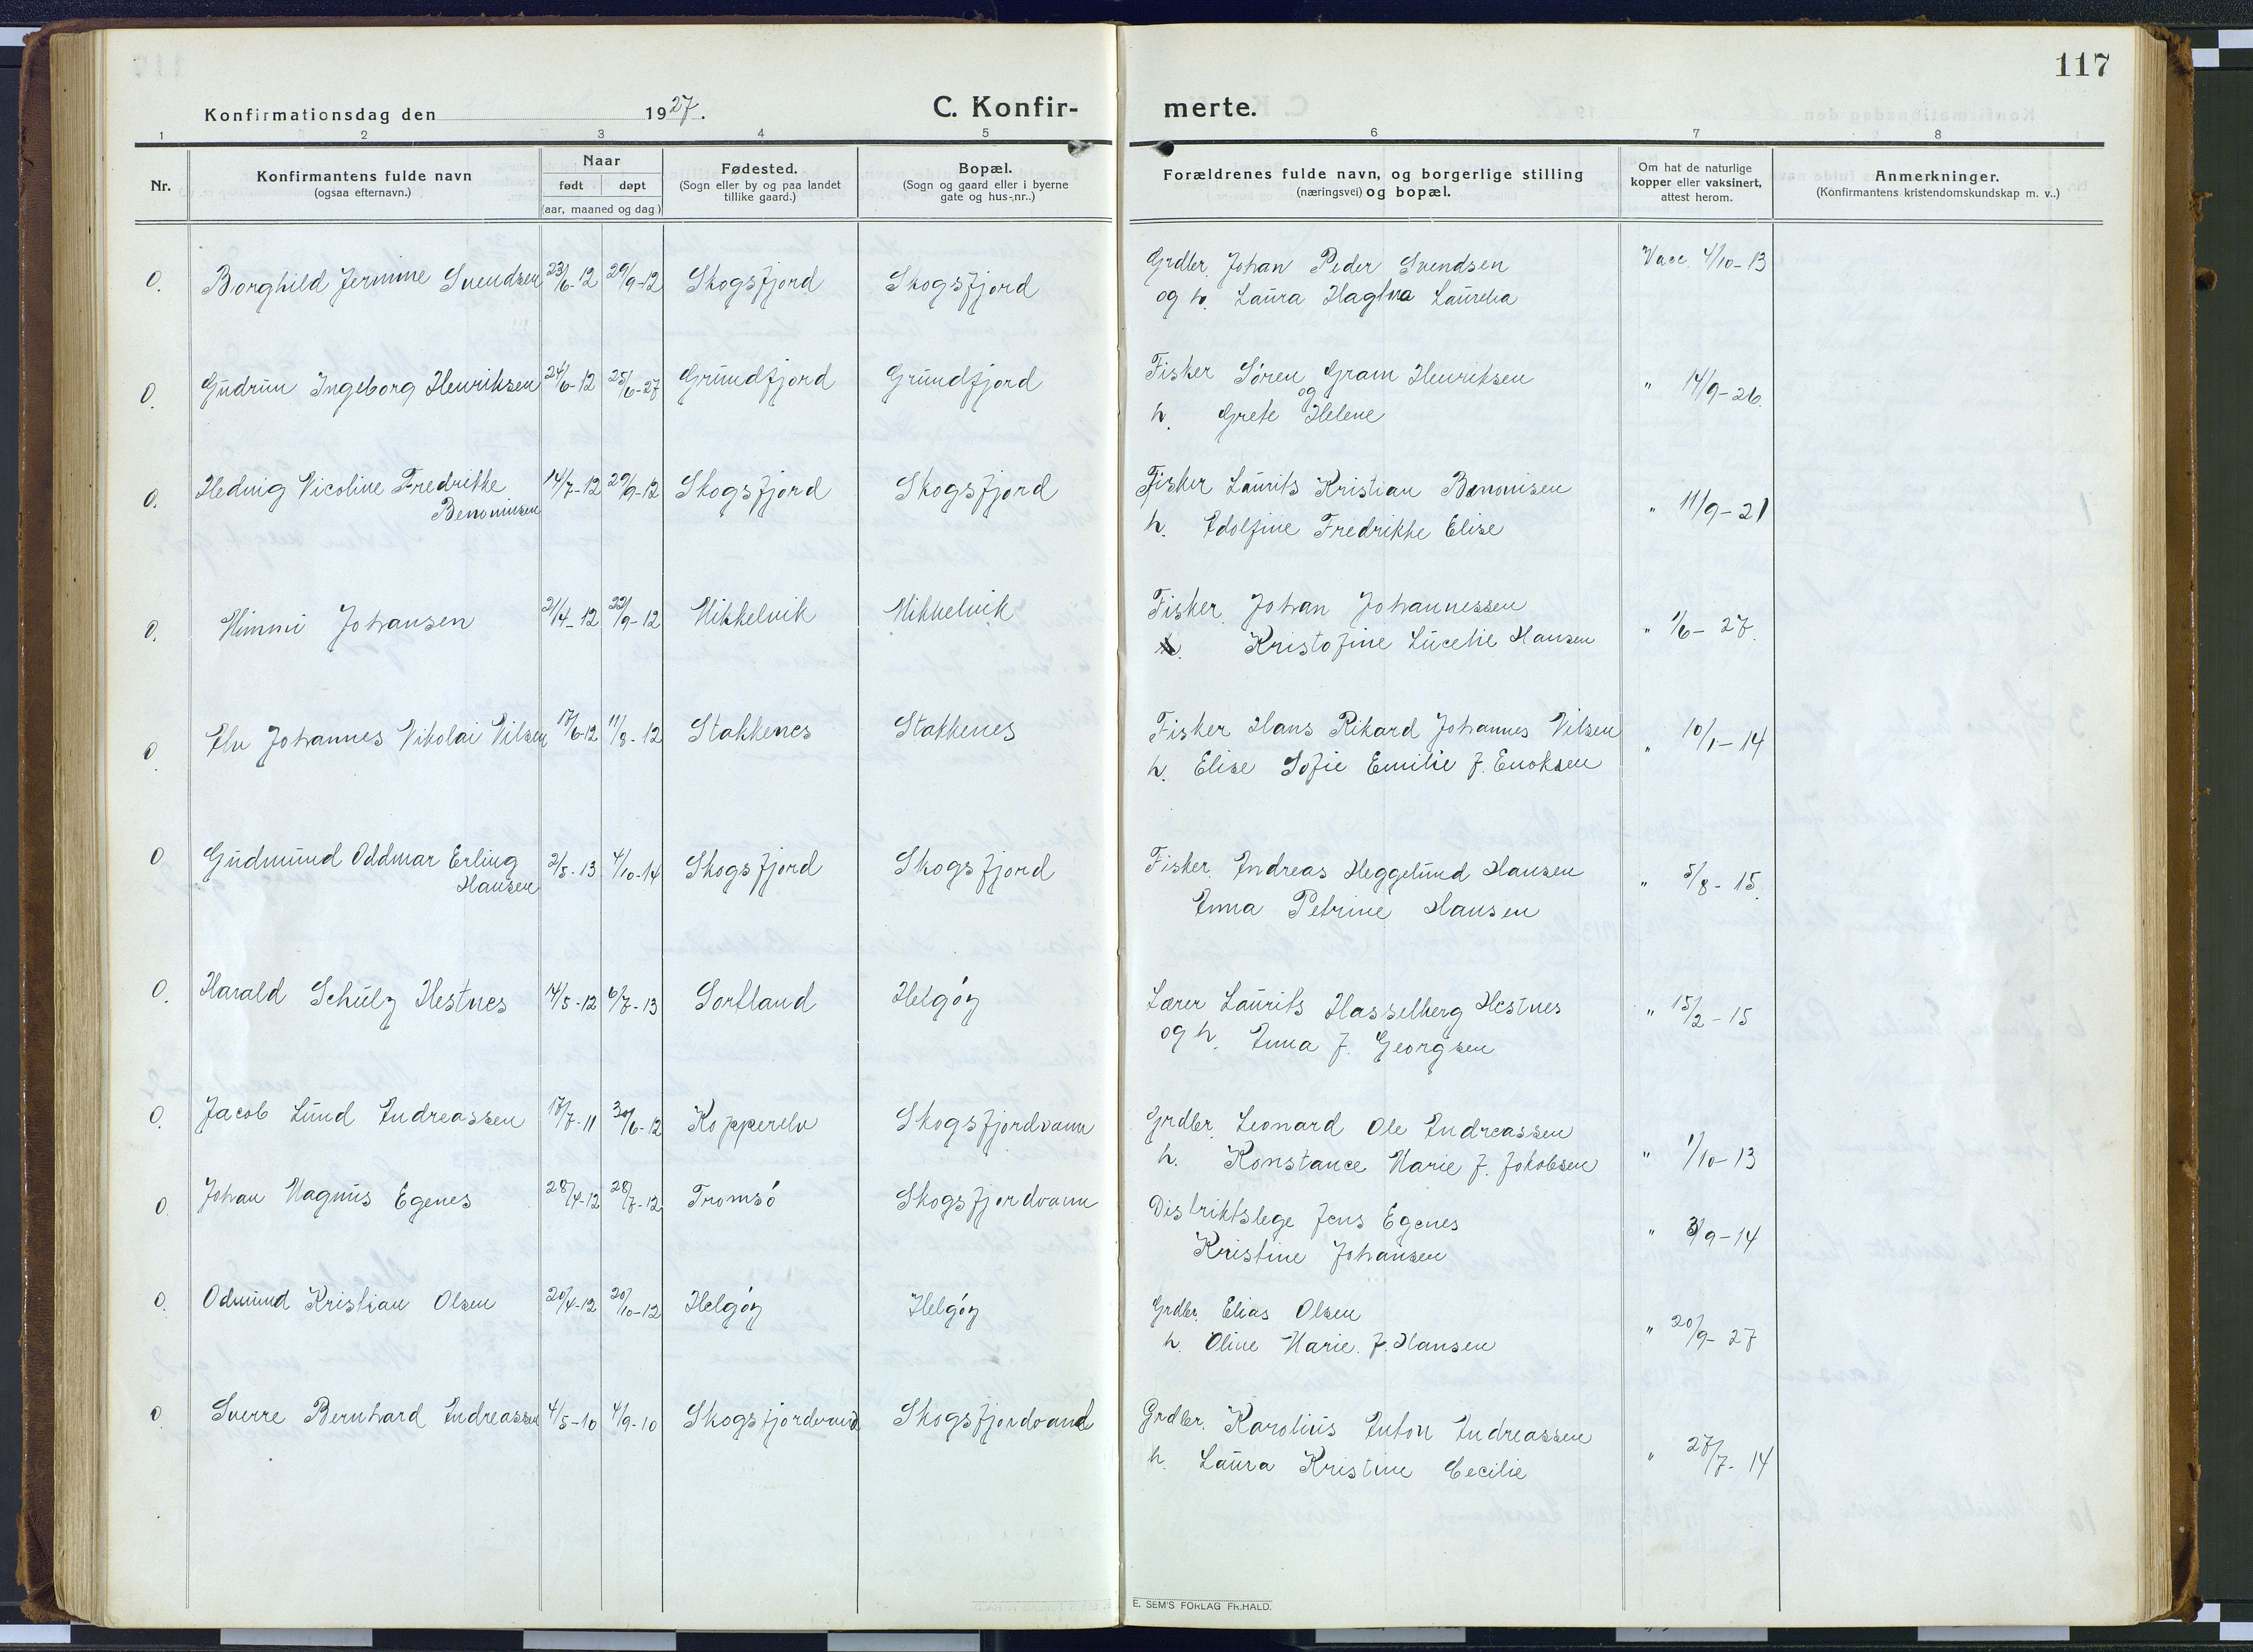 117
Konfirmationsdag den 1927.
C. Konfir-
merte.
1 2 3 4 5 6 7 8
Nr.
Konfirmantens fulde navn
(ogsaa efternavn.)
Naar
født døpt
(aar, maaned og dag.)
Fødested.
(Sogn eller by og paa landet
tillike gaard.)
Bopæl.
(Sogn og gaard eller i byerne
gate og hus-nr..)
Forældrenes fulde navn, og borgerlige stilling
(næringsvei) og bopæl.
Om hat de naturlige
kopper eller vaksinert,
attest herom.
Anmerkninger.
(Konfirmantens kristendomskundskap m. v..)
0. Borghild Jermine Svendsen 23/6-12 29/9-12 Skogsfjord Skogsfjord Grdbr. Johan Peder Svendsen Vacc. 4/10-13
og h. Laura Hagbna Laurelia
0. Gudrun Ingeborg Henriksen 24/6-12 25/6-27 Grundfjord Grundfjord Fisker Søren Gram Henriksen " 14/9-26.
og
h. Grete Helene
0. Hedvig Nicoline Fredrikke 14/7-12 29/9-12 Skogsfjord Skogsfjord Fisker Laurits Kristian Benonisen " 11/9-21
Benonisen
h. Adolfine Fredrikke Elise
0. Mimmi Johansen 21/4-12 22/9-12 Mikkelvik Mikkelvik Fisker. Johan Johannessen " 1/6-27.
Kristofine Lucelie Hansen
0. Alv Johannes Nikolai Nilsen 17/6-12 11/8-12 Stakkenes Stakkenes Fisker Hans Rikard Johannes Nilsen " 10/1-14
h. Elise Sofie Emilie f. Enoksen
0 Gudmund Oddmar Erling 2/5-13 4/10-14 Skogsfjord Skogsfjord Fisker. Andreas Heggelund Hansen " 5/8-15.
Hansen
Anna Petrine Hansen
0. Harald Schulz Hestnes 14/5-12 6/7-13 Sortland Helgøy Lærer Laurits Hasselberg Hestnes " 15/2-15
og h. Anna f. Georgsen
0. Jacob Lund Andreassen 17/7-11 30/6-12 Kopperelv Skogsfjordvann Grdbr. Leonard Ole Andreassen " 1/10-13
h. Konstance Marie f. Jakobsen
0. Johan Magnus Egenes 28/4-12 28/7-12 Tromsø Skogsfjordvann Distriktslege Jens Egenes " 3/9-14
Kristine Johansen
0. Odmund Kristian Olsen 20/4-12 20/10-12 Helgøy Helgøy Grdbr. Elias Olsen " 20/9-27
h. Oline Marie. f. Hansen
0 Sverre Bernhard Andreassen 4/5-10 4/9-10 Skogsfjordvand Skogsfjordvand Grdbr. Karolius Anton Andreassen " 27/7-14
h. Laura Kristine Cecilie
E. SEM'S FORLAG FR.HALD.